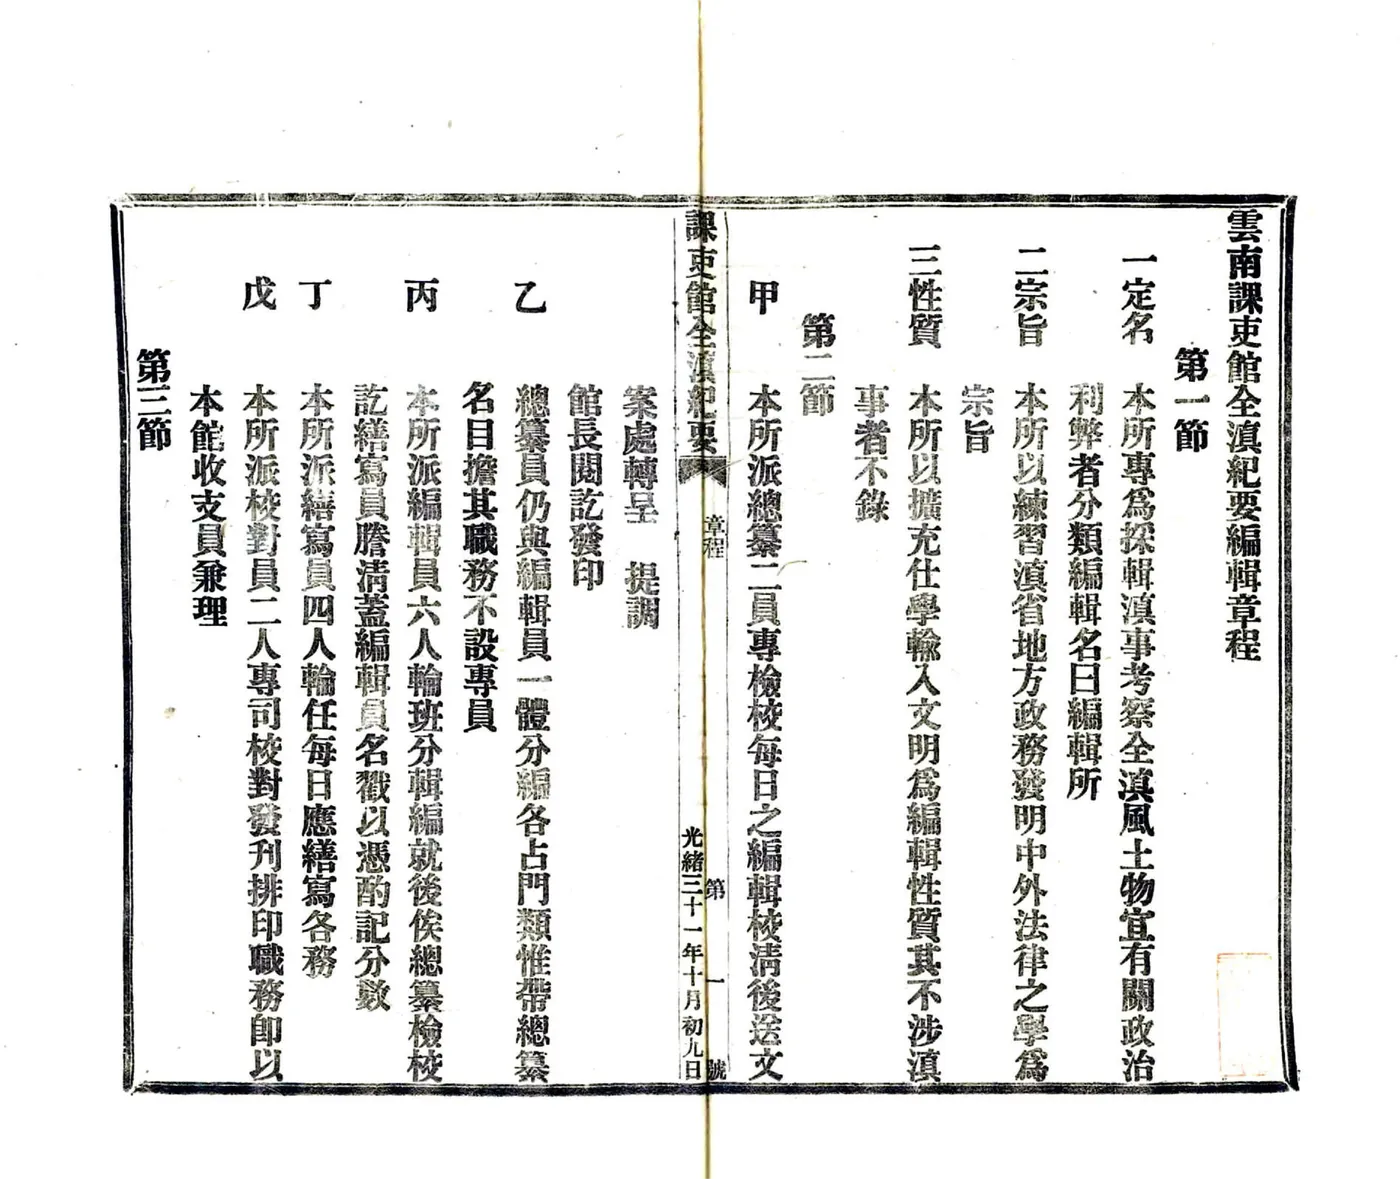 雲南課吏館全滇紀要編輯章程
第一節
一定名　本所專爲採輯滇事考察全滇風土物宜有關政治
利弊者分類編輯名曰編輯所
二宗旨　本所以練習滇省地方政務發明中外法律之學爲
宗旨
三性質　本所以擴充仕學輸入文明爲編輯性質其不涉滇
事者不錄
第二節
甲　本所派總纂二員專檢校每日之編輯校淸後送文
課吏館全滇紀要　章程　第一號
光緒三十一年十月初九日
案處轉呈　提調
館長閱訖發印
乙　總纂員仍與編輯員一體分編各占門類惟帶總纂
名目擔其職務不設專員
丙　本所派編輯員六人輪班分輯編就後俟總纂檢校
訖繕寫員謄淸蓋編輯員名戳以憑酌記分數
丁　本所派繕寫員四人輪任每日應繕寫各務
戊　本所派校對員二人專司校對發刋排印職務卽以
本館收支員兼理
第三節